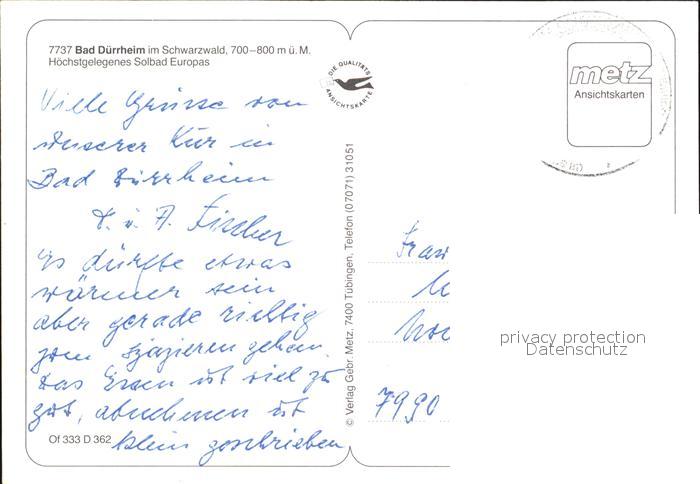 7737 Bad Dürrheim im Schwarzwald, 700–800 m ü. M.
Höchstgelegenes Solbad Europas
Viele Grüsse von
unserer Kur in
Bad Dürrheim
u. A. Fischer
Es dürfte etwas
wärmer sein
aber gerade richtig
zum spazieren gehen.
Das Essen ist viel zu
gut, abnehmen ist
klein geschrieben
Of 333 D 362
DIE QUALITÄTS
ANSICHTSKARTE
© Verlag Gebr. Metz, 7400 Tübingen, Telefon (07071) 31051
metz
Ansichtskarten
Frau
7990
privacy protection
Datenschutz